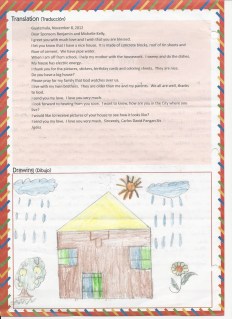 Translation (Traducción)
Guatemala, November 6, 2013
Dear Sponsors Benjamin and Michelle Kelly,
I greet you with much love and I wish that you are blessed.
I tell you know that I have a nice house. It is made of concrete blocks, roof of tin sheets and
floor of cement. We have pure water.
When I am off from school, I help my mother with the housework. I sweep and do the dishes.
My house has electric energy.
I thank you for the pictures, stickers, birthday cards and coloring sheets. They are nice.
Do you have a big house?
Please pray for my family that God watches over us.
I live with my two brothers. They are older than me and my parents. We all are well, thanks
to God.
I send you my love. I love you very much.
I look forward to hearing from you soon. I want to know, how old you in the City where you
live?
I would like to receive pictures of your house to see how it looks like?
I send you my love. I love you very much. Sincerely, Carlos David
Drawing (Dibujo)